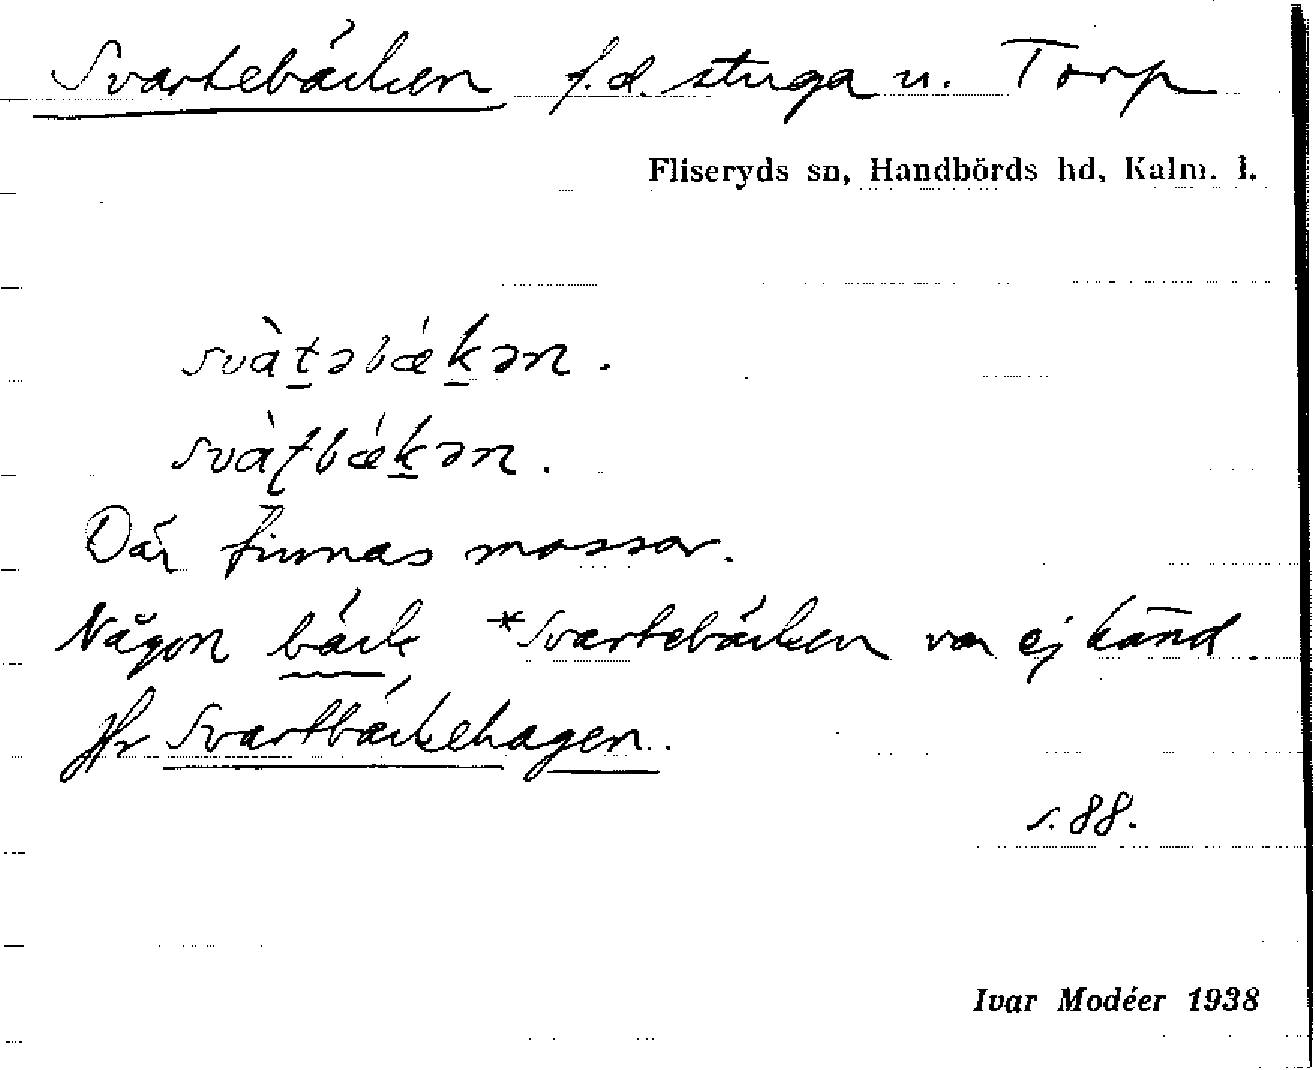 Svartebäcken f.d. stuga u. Torp
Fliseryds sn, Handbörds hd, Kalm. l.
svàt̲əbǽk̲ən.
svàʈbǽk̲ən.
Där finnas mossar.
Någon bäck *Svartebäcken var ej känd.
Jfr Svartbäckehagen.
s. 88.
Ivar Modéer 1938